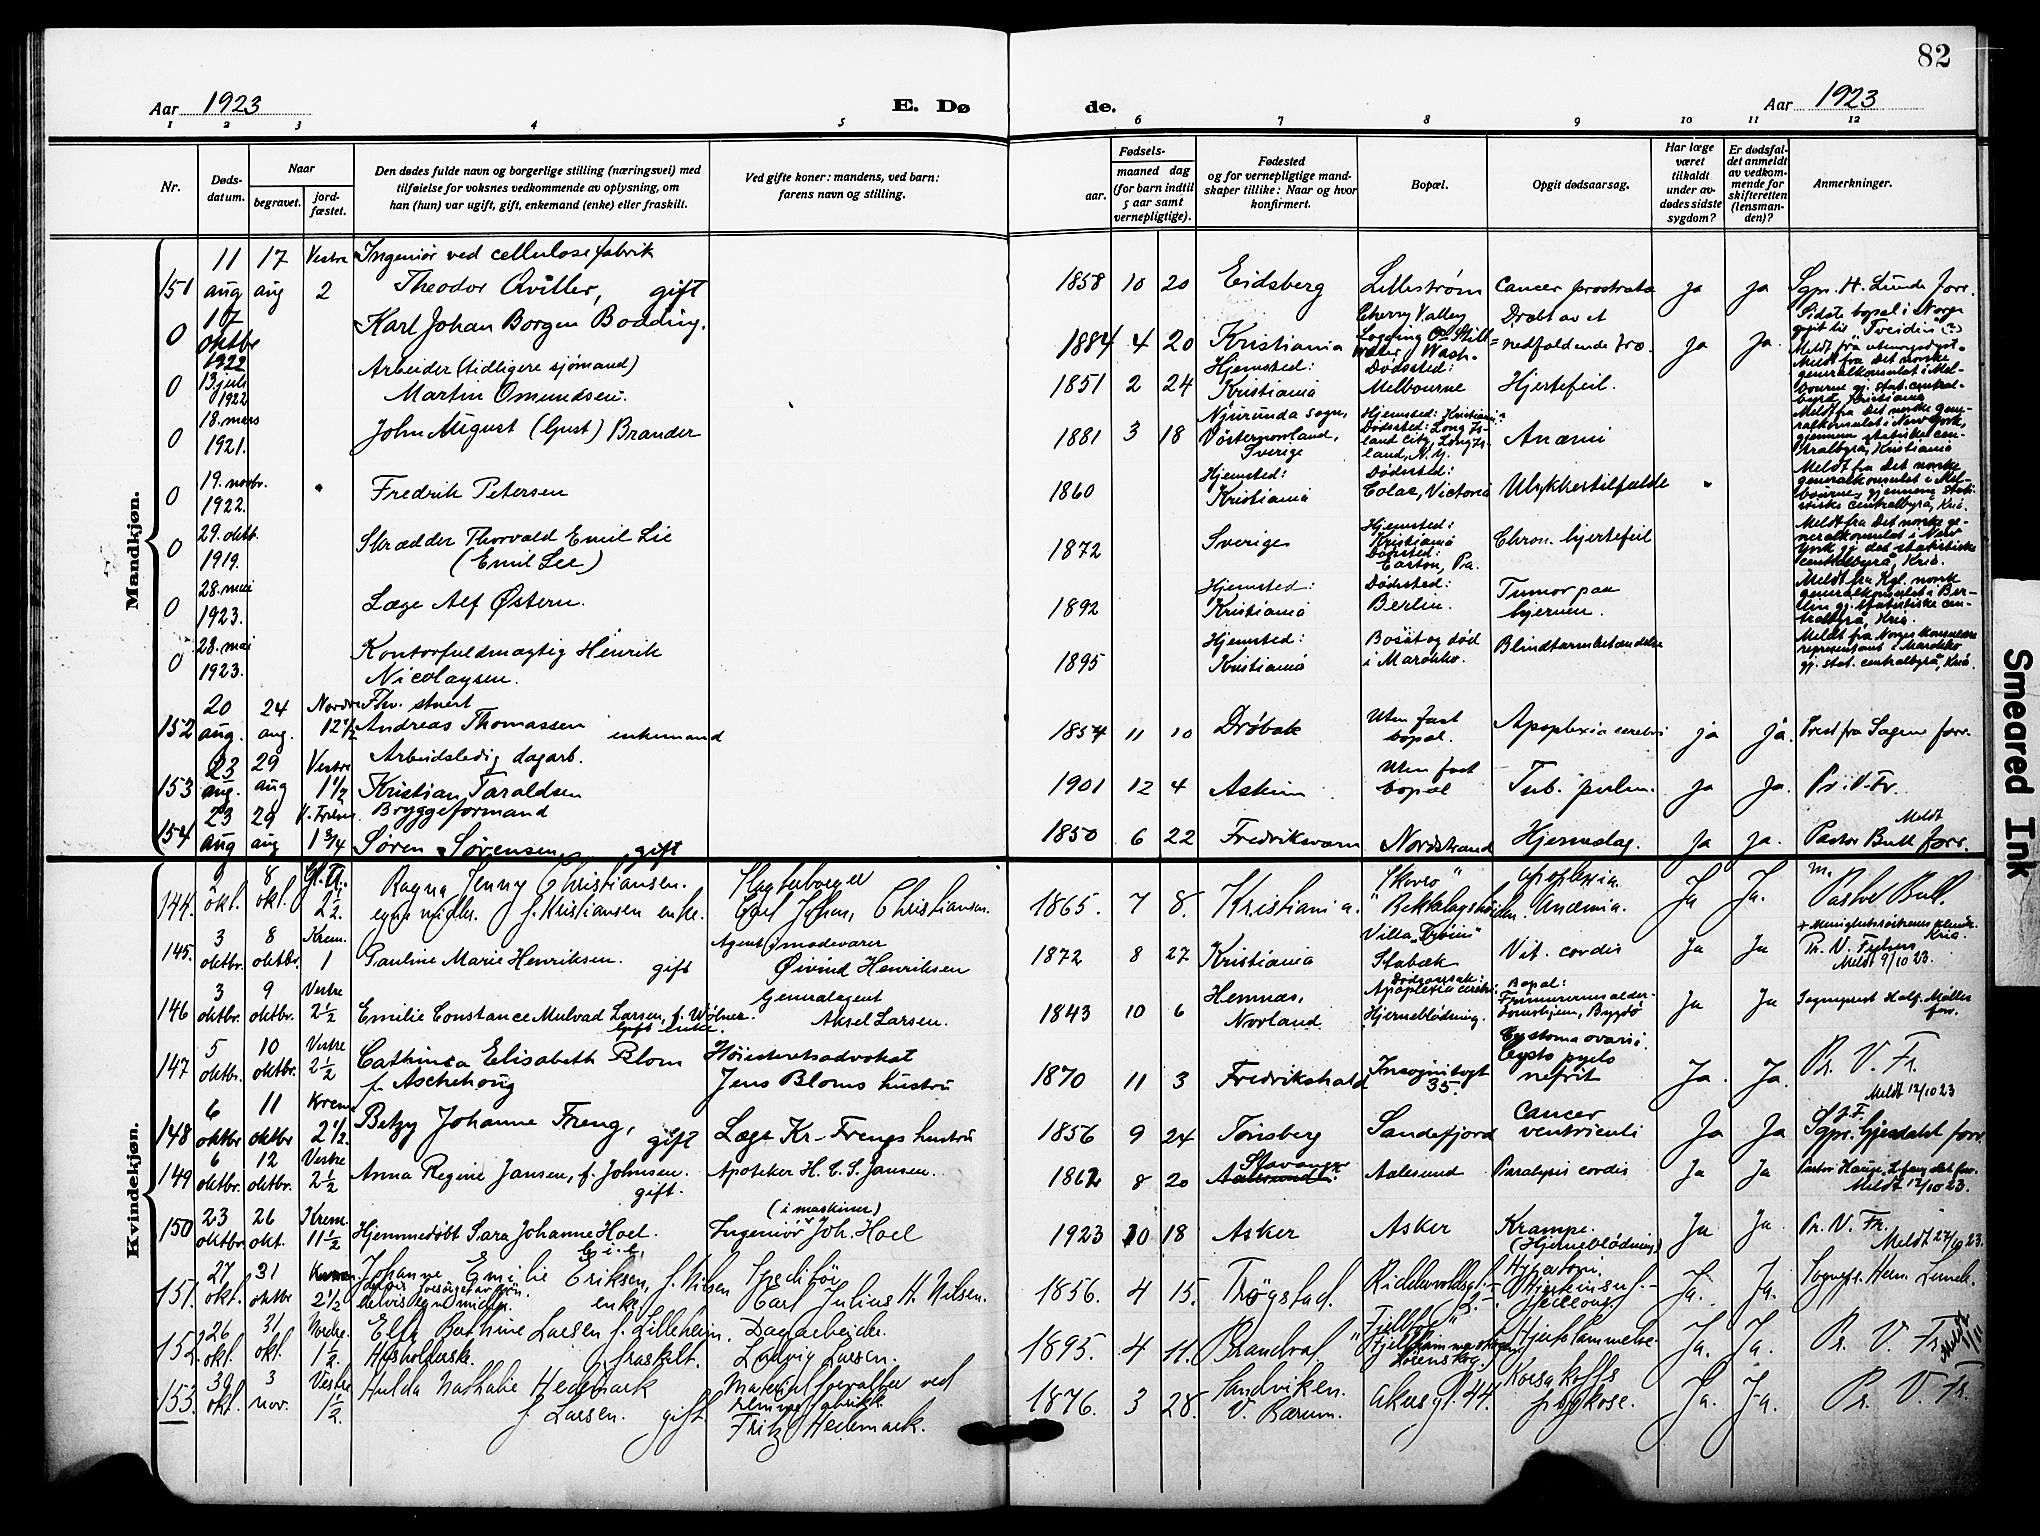 82
Aar 1923
E. Dø
de.
Aar 1923
1 2 3 4 5 6 7 8 9 10 11 12
Nr.
Døds-
datum.
Naar
begravet.
jord-
fæstet.
Den dødes fulde navn og borgerlige stilling (næringsvei) med
tilføielse for voksnes vedkommende av oplysning, om
han (hun) var ugift, gift, enkemand (enke) eller fraskilt.
Ved gifte koner: mandens, ved barn:
farens navn og stilling.
Fødsels-
aar.
maaned dag
(for barn indtil
5 aar samt
vernepligtige).
Fødested
og for vernepligtige mand-
skaper tillike: Naar og hvor
konfirmert.
Bopæl.
Opgit dødsaarsag.
Har læge
været
tilkaldt
under av-
dødes sidste
sygdom?
Er dødsfal-
det anmeldt
av vedkom-
mende for
skifteretten
(lensman-
den)?
Anmerkninger.
Mandkjøn.
151 11 aug 17 aug Vestre 2 Ingeniør ved cellulosefabrik
Theodor Qviller, gift 1858 10 20 Eidsberg Lillestrøm Cancer prostrata ja ja Sgpr. H. Lunde forr.
0 17 oktbr 1922 Karl Johan Borgen Bodding. 1884 4 20 Kristiania Cherry Valley
Logging Co. Still
water, Wash. Dræbt av et
nedfaldende træ. ja ja. Sidste bopæl i Norge
0 13 juli 1922 Arbeider (tidligere sjømand)
Martin Omundsen. 1851 2 24 Hjemsted:
Kristiania Dødssted:
Melbourne Hjertefeil. Meldt fra det norske
generalkonsulat i Mel-
bourne gj. stat. central-
byrå, Kristiania
0 18. mars 1921. John August (Gust) Brander 1881 3 18 Njurunda sogn,
Vesternorrland,
Sverige Hjemsted: Kristiania
Dødssted: Long Is-
land City, Long Is-
land, N.Y. Anæmi Meldt fra det norske gene-
ralkonsulat i New York,
gjennem statistiske cen-
tralbyrå, Kristiania
0 19. novbr. 1922. Fredrik Petersen 1860 Hjemsted:
Kristiania Dødssted:
Colac, Victoria Ulykkestilfælde Meldt fra det norske
generalkonsulat i Mel-
bourne, gjennem stati-
stiske centralbyrå, Kria.
0 29. oktb. 1919. Skrædder Thorvald Emil Lie
(Emil Lee) 1872 Sverige Hjemsted:
Kristiania
Dødssted:
Easton, Pa. Chron. hjertefeil Meldt fra det norske ge-
neralkonsulat i New
York gj. det statistiske
centralbyrå, Kria.
0 28. mai 1923. Læge Alf Østern. 1892 Hjemsted:
Kristiania Dødssted:
Berlin. Tumor paa
hjernen. Meldt fra Kgl. norsk
generalkonsulat i Ber-
lin gj. statistiske cen-
tralbyrå, Kria.
0 28. mai 1923. Kontorfuldmægtig Henrik
Nicolaysen. 1895 Hjemsted:
Kristiania Bosat og død
i Marokko. Blindtarmbetændelse Meldt fra Norges konsulære
representant i Marokko
gj. stat. centralbyrå, Kria.
152 20 aug. 24 aug. Nordre 12 1/2 Fhv. stuert
Andreas Thomassen enkemand 1854 11 10 Drøbak Uten fast
bopæl. Apoplexia cerebri ja ja. Prest fra Sagene forr.
153 23 aug. 29 aug Vestre 1 1/2 Arbeidsledig dagarb.
Kristian Taraldsen 1901 12 4 Askim Uten fast
bopæl Tub. pulm. ja ja. Pr. V. Fr.
154 23 aug 29 aug V. Frelsers 1 3/4 Bryggeformand
Søren Sørensen gift 1850 6 22 Fredriksværn Nordstrand Hjerneslag. ja ja. Meldt
Pastor Bull forr.
Kvindekjøn.
144. okt. 8 okt. 2 1/2. Ragna Jenny Christiansen.
egne midler. f. Kristiansen enke. Slagterborger
Carl Johan Christiansen. 1865. 7 8. Kristiania. "Skovro"
Bekkelagshøiden. apoplexia.
Anæmia. Ja Ja. Pastor Bull.
145. 3 oktbr. 8 oktbr. Krem. 1 Pauline Marie Henriksen. gift Agent i modevarer
Øivind Henriksen 1872 8 27 Kristiania Villa
Stabæk Vit. cordis Ja Ja Pr. V. Frelsers
Meldt 9/10 23.
146 3 oktbr. 9 oktbr. Vestre 2 1/2 Emilie Constance Mulvad Larsen, f. Wølner.
enke Generalagent
Aksel Larsen. 1843 10 6 Hemnæs,
Norland Dødsaarsak:
Apoplexia cerebri.
Hjerneblødning. Bopæl:
Frimurernes alder-
domshjem, Bygdø Ja Ja Sogneprest Half. Møller
forr.
147 5 oktbr. 10 oktbr. Vestre 2 1/2 Cathinca Elisabeth Blom
f. Aschehoug Høiesteretsadvokat
Jens Bloms hustru 1870 11 3 Fredrikshald Incognitogt
35. Cystoma ovarii.
Cysto pyelo
nefrit Ja. Ja. Pr. V. Fr.
Meldt 12/10 23
148 6 oktbr 11 oktbr Krem 2 1/2. Betzy Johanne Freng, gift Læge Kr. Frengs hustru 1856 9 24 Tønsberg Sandefjord Cancer
ventriculi Ja Ja Sgpr. Gjesdahl forr.
149 6 oktbr. 12 oktbr. Vestre 2 1/2 Anna Regine Jansen, f. Johnsen.
gift. Apoteker H. C. S. Jansen. 1862 8 20 Stavanger
Aalesund Aalesund Paralysis cordis Ja Ja Pastor Hauge
Meldt 12/10 23.
150 23 oktbr 26 okt. Krem. 11 1/2 Hjemmedøbt Sara Johanne Hoel. (i maskiner)
Ingeniør Joh. Hoel 1923 10 18 Asker Asker Krampe.
(Hjerneblødning) Ja Ja. Pr. V. Fr.
Meldt 27/10 23.
151. 27 okt. 31 oktbr 2 1/2 Johanne Emilie Eriksen, f. Nilsen
delvis egne midler. enke Speditør
Carl Julius H. Nilsen. 1856. 4 15. Trøgstad. Riddervoldsgt.
2. Ja. Ja. Sognepr. Herm. Lunde.
152. 26 okt. 31 okt. Nordre. 1 1/2. Elfr. Bertine Larsen f. Lilleheim.
Husholderske. fraskilt. Dagarbeider.
Ludvig Larsen. 1895. 4 11. Brandval "Fjeldbo"
Lørenskog. Hjertelammelse Ja. Ja. Pr. V. Fr.
153. 30 okt. 3 nov. Vestre 1 1/2. Hulda Nathalie Hedemark
f. Larsen. gift Materialforvalter ved
Fritz Hedemark. 1876. 3 28. Sandviken.
V. Bærum. Akersgt. 44. Korsakoffs
psykose. Ja. Ja. Pr. V. Fr.
Smeared Ink